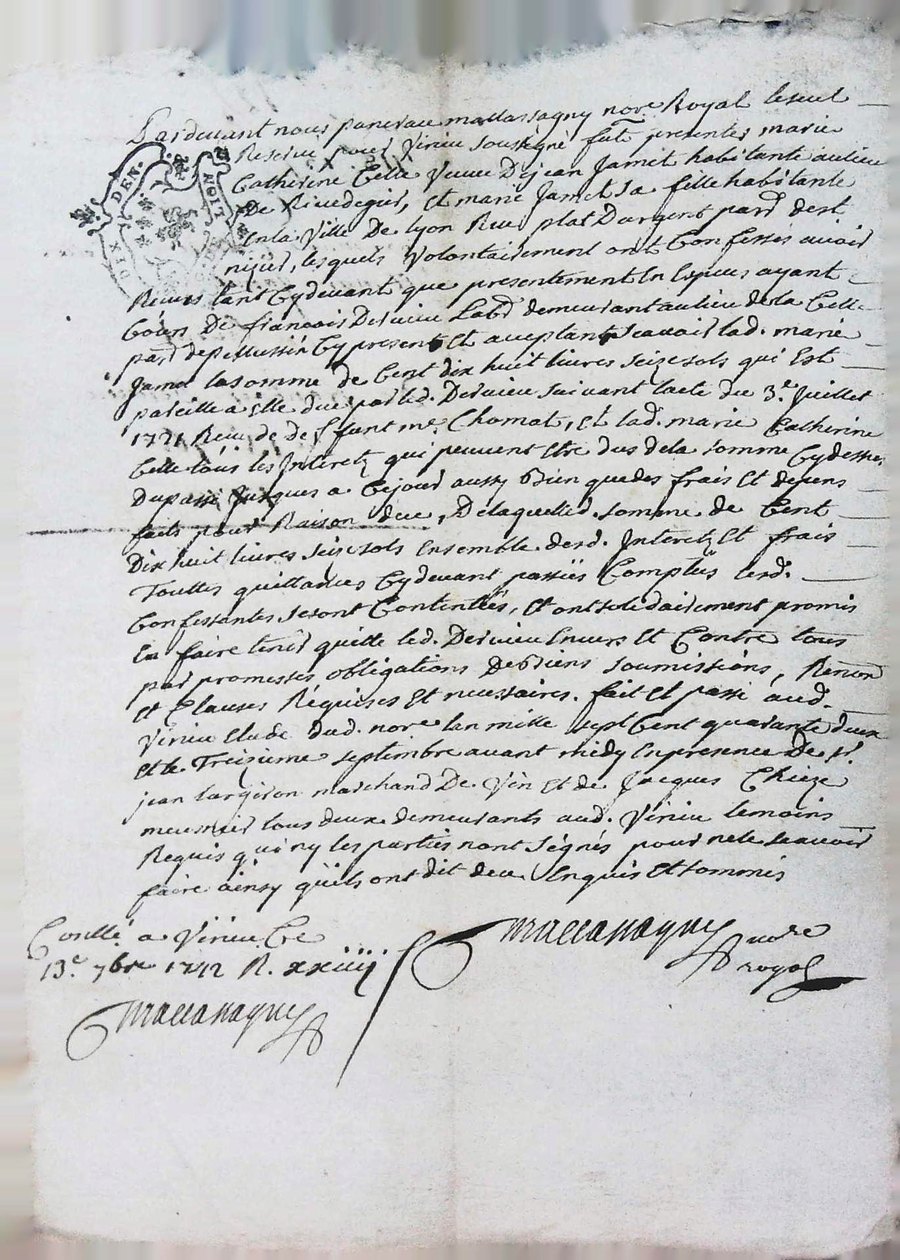 Pardevant nous pancrace mallassagny nore Royal le seul
Reservé pour Virieu soussigné fut presentes marie
Catherine Celle Veuve De jean Jamet habitante au lieu
De Rivedegier, et marie Jamet sa fille habitante
en la Ville De Lyon Rue plat D'argent par. de st
nizier, lesquels Volontairement ont Confessés avoir
Receus tant Cydevant que presentement En Especes ayant
Cours De francois Dervieu Labr demeurant au lieu de la Celle
par. de pelussin Cy present et acceptant sçavoir lad. marie
Jamet la somme de Cent dix huit livres seize sols qui Est
pareille a elle due par led. Dervieu suivant l'acte du 3.e Juillet
1721 Receu de deffunt me. Chomat, et lad. marie Catherine
Celle tous les Interetz qui peuvent etre dus de la somme Cydessus
Du passé Jusques a Cejour aussy Bien que des frais et depens
faits pour Raison dice, De laquelle d. somme de Cent
Dix huit livres seize sols Ensemble desd. Interetz et frais
Touttes quittances Cydevant passées Comptüs lesd.
Confessantes se sont Contentées, et ont solidairement promis
En faire tenir quitte led. Dervieu Envers et Contre tous
par promesses obligations De Biens soumissions, Renon
et Clauses Réquises et necessaires. fait et passé aud.
Virieu Etude dud. nore lan mille sept Cent quarante deux
et le Treisieme septembre avant midy En presence De sr.
jean largeron marchand De Vin et de Jacques Chieze
meusnier tous deux demeurants aud. Virieu temoins
Requis qui ny les parties n'ont signés pour ne le sçavoir
faire ainsy qu'ils ont dit de ce Enquis et sommés
DIX DEN. NOIT
Conllé a Virieu Ce
13.e 7bre 1742 R. xxiiij s
mallassagny
mallassagny
nore
royal